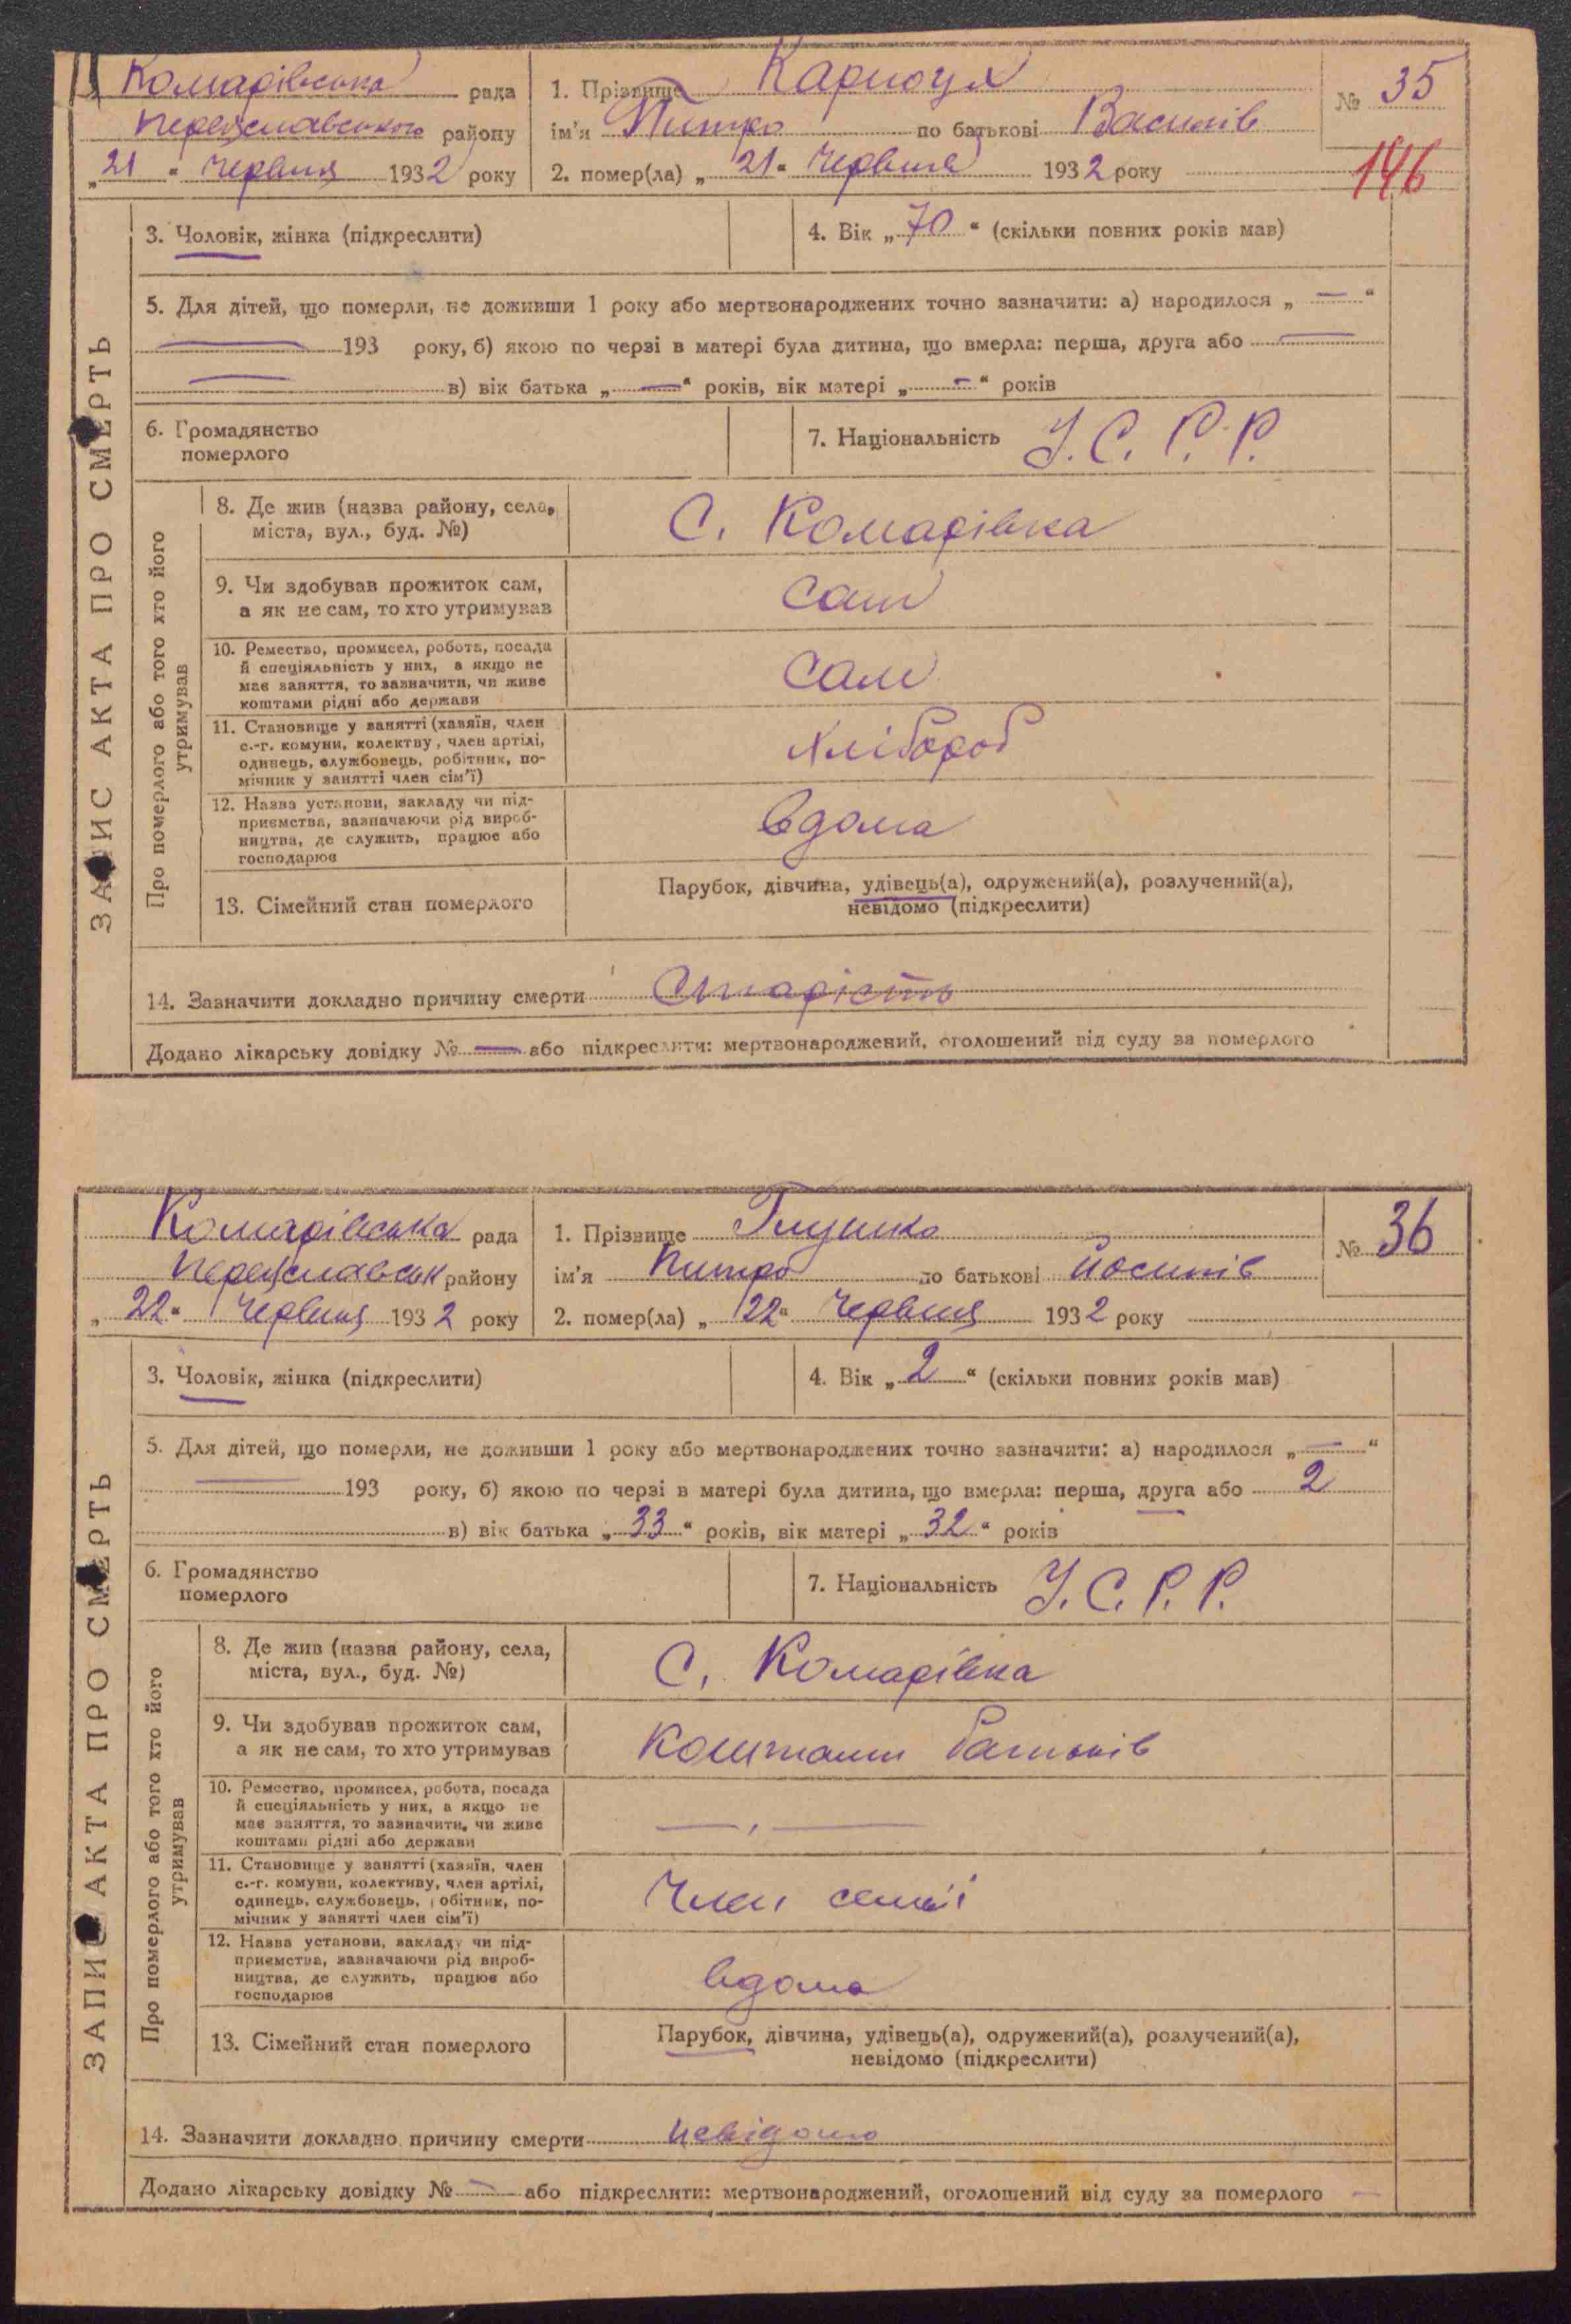 Комарівська рада
Переяславського району
„21“ Червня 1932 року
1. Прізвище Карпоух
ім’я Питро по батькові Василів
2. помер(ла) „21“ Червня 1932 року
№ 35
146
ЗАПИС АКТА ПРО СМЕРТЬ
3. Чоловік, жінка (підкреслити)
4. Вік „70“ (скільки повних років мав)
5. Для дітей, що померли, не доживши 1 року або мертвонароджених точно зазначити: а) народилося „—“
— 193 року, б) якою по черзі в матері була дитина, що вмерла: перша, друга або —
— в) вік батька „—“ років, вік матері „—“ років
6. Громадянство
померлого
7. Національність У.С.Р.Р.
Про померлого або того хто його
утримував
8. Де жив (назва району, села,
міста, вул., буд. №)
С. Комарівка
9. Чи здобував прожиток сам,
а як не сам, то хто утримував
Сам
10. Ремество, промисел, робота, посада
й спеціяльність у них, а якщо не
має заняття, то зазначити, чи живе
коштами рідні або держави
Сам
11. Становище у занятті (хазяїн, член
с.-г. комуни, колективу, член артілі,
одинець, службовець, робітник, по-
мічник у занятті член сім’ї)
Хлібороб
12. Назва установи, закладу чи під-
приємства, зазначаючи рід вироб-
ництва, де служить, працює або
господарює
вдома
13. Сімейний стан померлого
Парубок, дівчина, удівець(а), одружений(а), розлучений(а),
невідомо (підкреслити)
14. Зазначити докладно причину смерти Старість
Додано лікарську довідку № — або підкреслити: мертвонароджений, оголошений від суду за померлого
Комарівська рада
Переяславськ району
„22“ Червня 1932 року
1. Прізвище Глушко
ім’я Питро по батькові Йосипів
2. помер(ла) „22“ Червня 1932 року
№ 36
ЗАПИС АКТА ПРО СМЕРТЬ
3. Чоловік, жінка (підкреслити)
4. Вік „2“ (скільки повних років мав)
5. Для дітей, що померли, не доживши 1 року або мертвонароджених точно зазначити: а) народилося „—“
— 193 року, б) якою по черзі в матері була дитина, що вмерла: перша, друга або 2
в) вік батька „33“ років, вік матері „32“ років
6. Громадянство
померлого
7. Національність У.С.Р.Р.
Про померлого або того хто його
утримував
8. Де жив (назва району, села,
міста, вул., буд. №)
С. Комарівка
9. Чи здобував прожиток сам,
а як не сам, то хто утримував
Коштами батьків
10. Ремество, промисел, робота, посада
й спеціяльність у них, а якщо не
має заняття, то зазначити, чи живе
коштами рідні або держави
— , —
11. Становище у занятті (хазяїн, член
с.-г. комуни, колективу, член артілі,
одинець, службовець, робітник, по-
мічник у занятті член сім’ї)
Член семьї
12. Назва установи, закладу чи під-
приємства, зазначаючи рід вироб-
ництва, де служить, працює або
господарює
вдома
13. Сімейний стан померлого
Парубок, дівчина, удівець(а), одружений(а), розлучений(а),
невідомо (підкреслити)
14. Зазначити докладно причину смерти невідомо
Додано лікарську довідку № — або підкреслити: мертвонароджений, оголошений від суду за померлого —